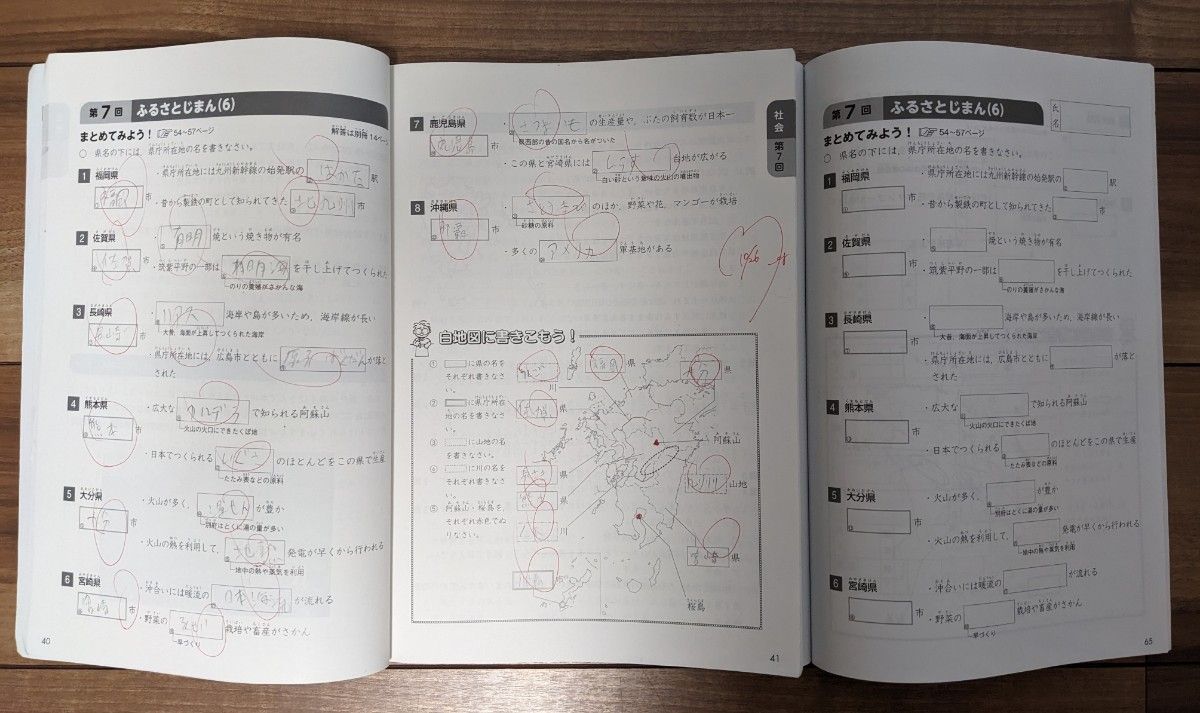 第7回 ふるさとじまん(6)
まとめてみよう! 54~57ページ
解答は別冊14ページ
○ 県名の下には,県庁所在地の名を書きなさい。
1 福岡県
・県庁所在地には九州新幹線の始発駅の はかた 駅
福岡 市
・昔から製鉄の町として知られてきた 北九州 市
2 佐賀県
有明 焼という焼き物が有名
佐賀 市
・筑紫平野の一部は 有明海 を干し上げてつくられた
のりの養殖がさかんな海
3 長崎県
・リアス 海岸や島が多いため,海岸線が長い
大昔,海面が上昇してつくられた海岸
市
・県庁所在地には,広島市とともに が落と
された
4 熊本県
・広大な カルデラ で知られる阿蘇山
火山の火口にできたくぼ地
熊本
・日本でつくられる のほとんどをこの県で生産
たたみ表などの原料
5 大分県
・火山が多く, が豊か
別府はとくに湯の量が多い
大分 市
・火山の熱を利用して, 地熱 発電が早くから行われる
地中の熱や蒸気を利用
6 宮崎県
・沖合いには暖流の 日本 が流れる
宮崎 市
・野菜の 栽培や畜産がさかん
早づくり
40
7 鹿児島県
・さつまいも の生産量や,ぶたの飼育数が日本一
県西部の昔の国名から名がついた
市
・この県と宮崎県には シラス 台地が広がる
白い砂という意味の火山の噴出物
8 沖縄県
・さとうきび のほか,野菜や花,マンゴーが栽培
砂糖の原料
那覇 市
・多くの アメリカ 軍基地がある
社会 第7回
白地図に書きこもう!
① に県の名を
それぞれ書きなさ
い。
② に県庁所在
地の名を書きなさ
い。
③ に山地の名
を書きなさい。
④ に川の名を
それぞれ書きなさ
い。
⑤ 阿蘇山・桜島を,
それぞれ赤色でぬ
りなさい。
川
県
大分 県
県
阿蘇山
県
九州 山地
県
川
宮崎 県
桜島
41
第7回 ふるさとじまん(6)
氏名
まとめてみよう! 54~57ページ
○ 県名の下には,県庁所在地の名を書きなさい。
1 福岡県
・県庁所在地には九州新幹線の始発駅の 駅
市
・昔から製鉄の町として知られてきた 市
2 佐賀県
・ 焼という焼き物が有名
市
・筑紫平野の一部は を干し上げてつくられた
のりの養殖がさかんな海
3 長崎県
・ 海岸や島が多いため,海岸線が長い
大昔,海面が上昇してつくられた海岸
市
・県庁所在地には,広島市とともに が落と
された
4 熊本県
・広大な で知られる阿蘇山
火山の火口にできたくぼ地
市
・日本でつくられる のほとんどをこの県で生産
たたみ表などの原料
5 大分県
・火山が多く, が豊か
別府はとくに湯の量が多い
市
・火山の熱を利用して, 発電が早くから行われる
地中の熱や蒸気を利用
6 宮崎県
・沖合いには暖流の が流れる
市
・野菜の 栽培や畜産がさかん
早づくり
65